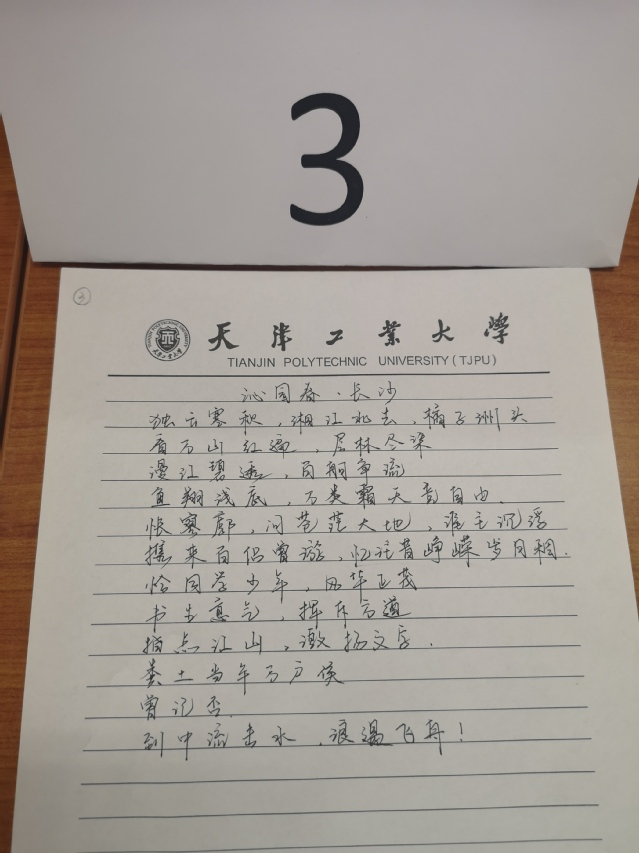 3
3
天津工业大学
TIANJIN POLYTECHNIC UNIVERSITY (TJPU)
沁园春·长沙
独立寒秋,湘江北去,橘子洲头
看万山红遍,层林尽染
漫江碧透,百舸争流
鱼翔浅底,万类霜天竞自由.
怅寥廓,问苍茫大地,谁主沉浮
携来百侣曾游,忆往昔峥嵘岁月稠.
恰同学少年,风华正茂
书生意气,挥斥方遒
指点江山,激扬文字.
粪土当年万户侯
曾记否.
到中流击水,浪遏飞舟!